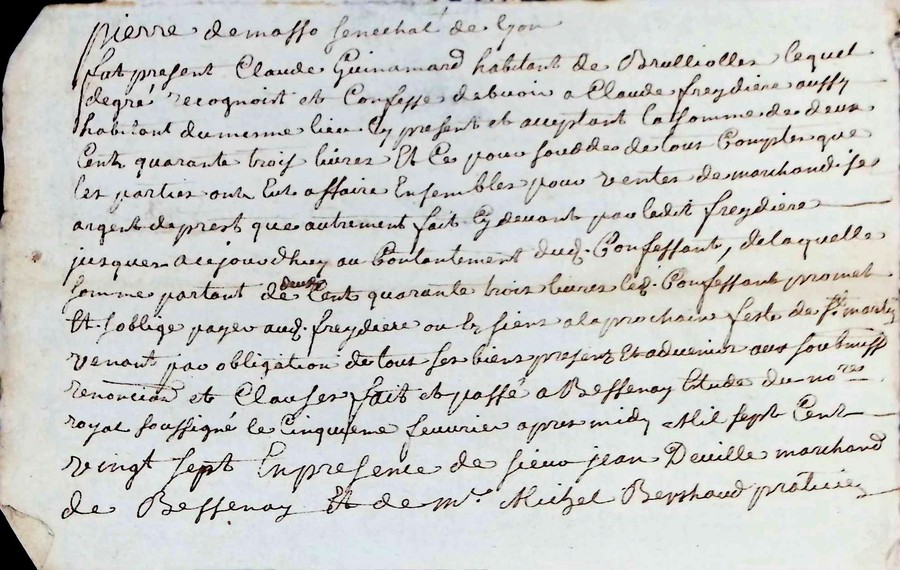 pierre demasso senechal de lyon
fut present Claude Guinamard habitant de Brulliolles lequel
degré recognoist et Confesse debuoir a Claude freydiere aussy
habitant dumesme lieu Cy present et acceptant la somme de deux
Cent quarante trois livres Et Ce pour soudde de tous Comptes que
les parties ont Eut affaire Ensembles pour ventes de marchandises
argent de prest que autrement fait Cy devant par ladit freydiere
jusques a cejourdhuy au Contantement dud. Confessant, delaquelle
somme partant de deux Cent quarante trois livres led. Confessant promet
Et soblige payer aud. freydiere ou les siens a la prochain feste de st martin
venant par obligation de tous ses biens present Et advenir aux soubmiss
renoncian et Clauses fait et passé a Bessenay Estude du nore
royal soussigné le Cinquieme feuvrier apres midy Mil sept Cent
vingt sept En presence de sieur jean Deville marchand
de Bessenay Et de me. Michel Berthaud praticien